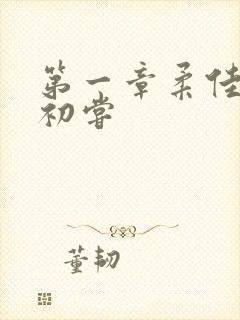 第一章柔佳
初尝
董韧